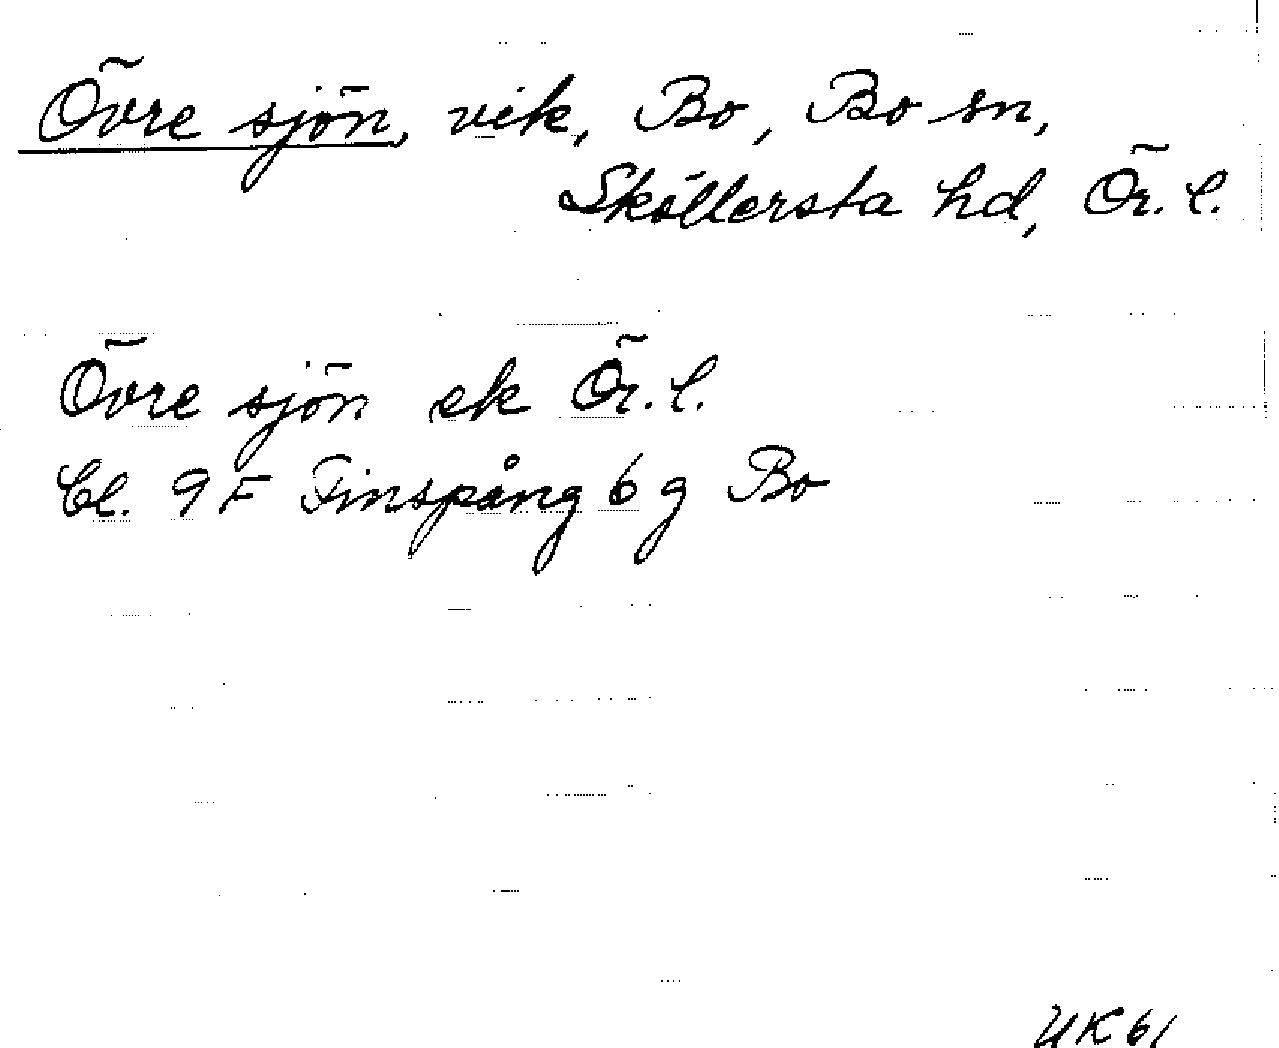 Övre sjön, vik, Bo, Bo sn,
Sköllersta hd, Ör. l.
Övre sjön ek Ör. l.
bl. 9 F Finspång 6 g Bo
UK61